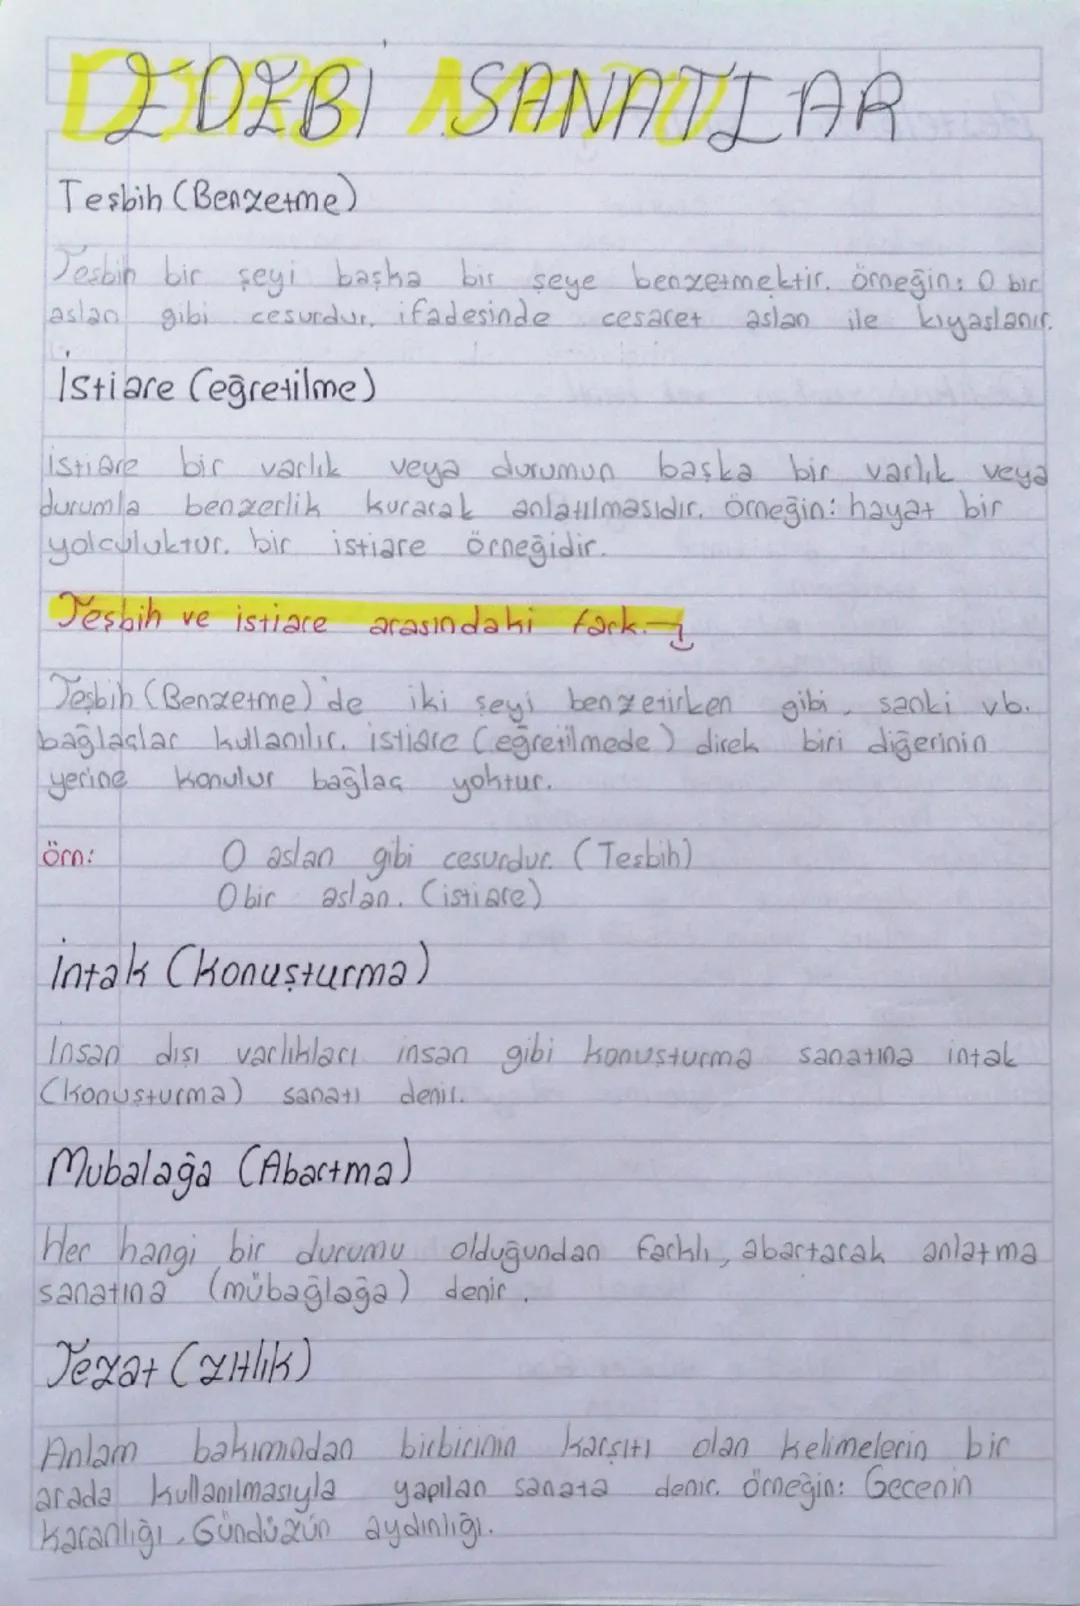 EDEBİ SANATLAR
Teşbih (Benzetme)
Teşbih bir şeyi başka bir şeye benzetmektir. örneğin: O bir
aslan gibi cesurdur. ifadesinde cesaret aslan ile kıyaslanır.
İstiare (eğretilme)
istiare bir varlık veya durumun başka bir varlık veya
durumla benzerlik kurarak anlatılmasıdır. örneğin: hayat bir
yolculuktur. bir istiare örneğidir.
Teşbih ve istiare arasındaki fark.
Teşbih (Benzetme)'de iki şeyi benzetirken gibi, sanki vb.
bağlaçlar kullanılır. istiare (eğretilmede) direk biri diğerinin
yerine konulur bağlaç yoktur.
örn: O aslan gibi cesurdur. (Teşbih)
O bir aslan. (istiare)
İntak (Konuşturma)
İnsan dışı varlıkları insan gibi konuşturma sanatına intak
(konuşturma) sanatı denir.
Mubalağa (Abartma)
Her hangi bir durumu olduğundan farklı, abartarak anlatma
sanatına (mübağlağa) denir.
Tezat (Zıtlık)
Anlam bakımından birbirinin karşıtı olan kelimelerin bir
arada kullanılmasıyla yapılan sanata denir. örneğin: Gecenin
karanlığı, Gündüzün aydınlığı.